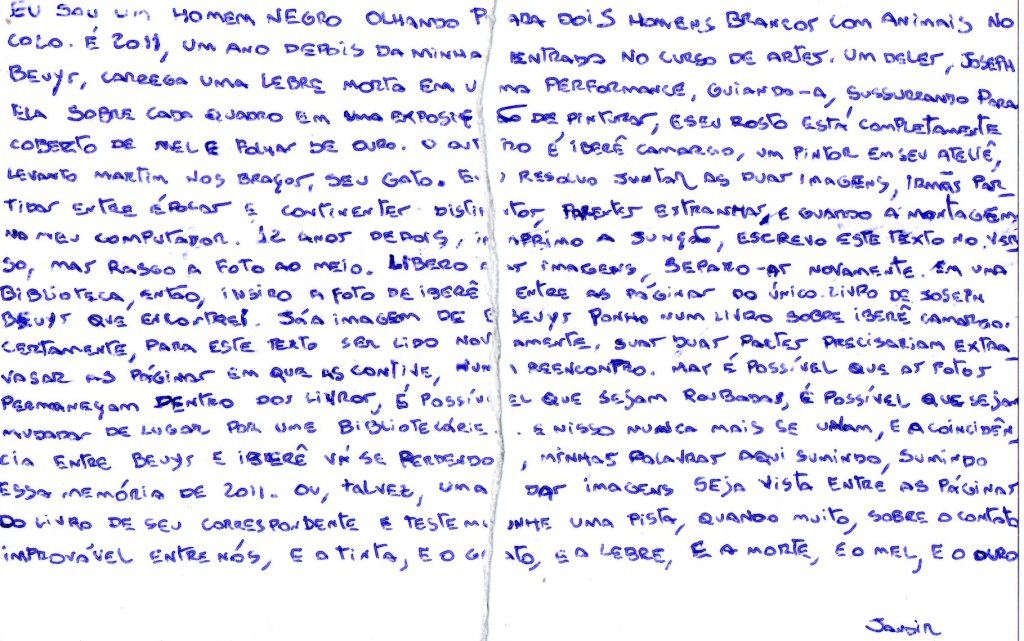 EU SOU UM HOMEM NEGRO OLHANDO PARA DOIS HOMENS BRANCOS COM ANIMAIS NO
COLO. É 2011, UM ANO DEPOIS DA MINHA ENTRADA NO CURSO DE ARTES. UM DELES, JOSEPH
BEUYS, CARREGA UMA LEBRE MORTA EM UMA PERFORMANCE, GUIANDO-A, SUSSURRANDO PARA
ELA SOBRE CADA QUADRO EM UMA EXPOSIÇÃO DE PINTURAS, E SEU ROSTO ESTÁ COMPLETAMENTE
COBERTO DE MEL E FOLHAS DE OURO. O OUTRO É IBERÊ CAMARGO, UM PINTOR EM SEU ATELIÊ,
LEVANTO MARTIM NOS BRAÇOS, SEU GATO. EU RESOLVO JUNTAR AS DUAS IMAGENS, IRMÃS PAR-
TIDAS ENTRE ÉPOCAS E CONTINENTES DISTINTOS, PARENTES ESTRANHAS, E GUARDO A MONTAGEM
NO MEU COMPUTADOR. 12 ANOS DEPOIS, IMPRIMO A JUNÇÃO, ESCREVO ESTE TEXTO NO VER
SO, MAS RASGO A FOTO AO MEIO. LIBERO AS IMAGENS, SEPARO-AS NOVAMENTE. EM UMA
BIBLIOTECA, ENTÃO, INSIRO A FOTO DE IBERÊ ENTRE AS PÁGINAS DO ÚNICO LIVRO DE JOSEPH
BEUYS QUE ENCONTREI. JÁ A IMAGEM DE BEUYS PONHO NUM LIVRO SOBRE IBERÊ CAMARGO.
CERTAMENTE, PARA ESTE TEXTO SER LIDO NOVAMENTE, SUAS DUAS PARTES PRECISARIAM EXTRA-
VASAR AS PÁGINAS EM QUE AS CONTIVE, NUM REENCONTRO. MAS É POSSÍVEL QUE AS FOTOS
PERMANEÇAM DENTRO DOS LIVROS, É POSSÍVEL QUE SEJAM ROUBADAS, É POSSÍVEL QUE SEJAM
MUDADAS DE LUGAR POR UME BIBLIOTECÁRIE. E NISSO NUNCA MAIS SE UNAM, E A COINCIDÊN-
CIA ENTRE BEUYS E IBERÊ VÁ SE PERDENDO, MINHAS PALAVRAS AQUI SUMINDO, SUMINDO
ESSA MEMÓRIA DE 2011. OU, TALVEZ, UMA DAS IMAGENS SEJA VISTA ENTRE AS PÁGINAS
DO LIVRO DE SEU CORRESPONDENTE E TESTEMUNHE UMA PISTA, QUANDO MUITO, SOBRE O CONTATO
IMPROVÁVEL ENTRE NÓS, E A TINTA, E O GATO, E A LEBRE, E A MORTE, E O MEL, E O OURO